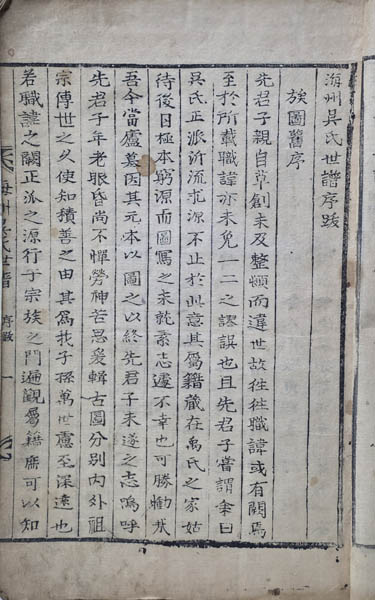 海州吳氏世譜序跋
族圖舊序
先君子親自草創未及整頓而違世故往往職諱或有闕焉
至於所載職諱亦未免一二之謬誤也且先君子嘗謂余曰
吳氏正派沂流求源不止於此意其屬籍藏在禹氏之家姑
待後日極本窮源而圖寫之未就素志遽不幸也可勝慟哉
吾今當廬墓因其元本以圖之以終先君子未遂之志嗚呼
先君子年老眼昏尚不憚勞神苦思爰輯古圖分別內外祖
宗傳世之久使知積善之由其爲我子孫萬世慮至深遠也
若職諱之闕正派之源行于宗族之門遍觀屬籍庶可以知
海州吳氏世譜
序跋
一